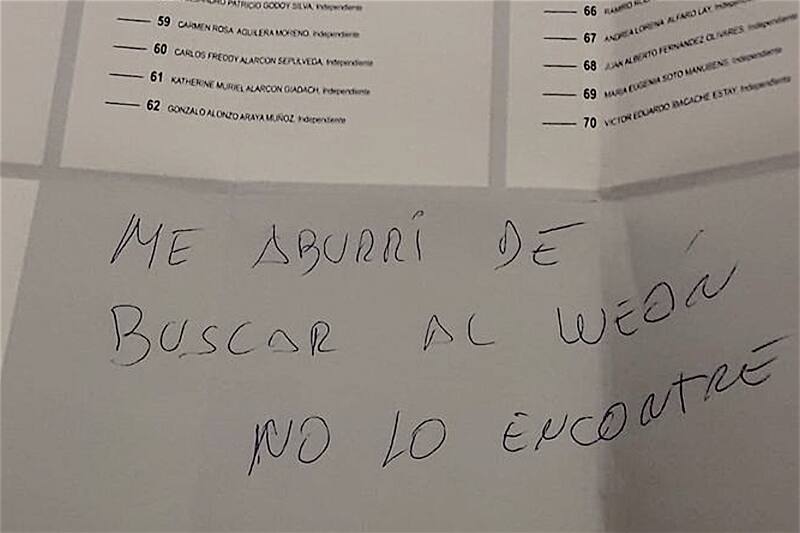 PATRICIO GODOY SILVA, Independiente
59 CARMEN ROSA AGUILERA MORENO, Independiente
60 CARLOS FREDDY ALARCON SEPULVEDA, Independiente
61 KATHERINE MURIEL ALARCON GIADACH, Independiente
62 GONZALO ALONZO ARAYA MUÑOZ, Independiente
66 RAMIRO
67 ANDREA LORENA ALFARO LAY, Independiente
68 JUAN ALBERTO FERNANDEZ OLIVARES, Independiente
69 MARIA EUGENIA SOTO MANUBENS, Independiente
70 VICTOR EDUARDO IBACACHE ESTAY, Independiente
ME ABURRÍ DE
BUSCAR AL WEÓN
NO LO ENCONTRE